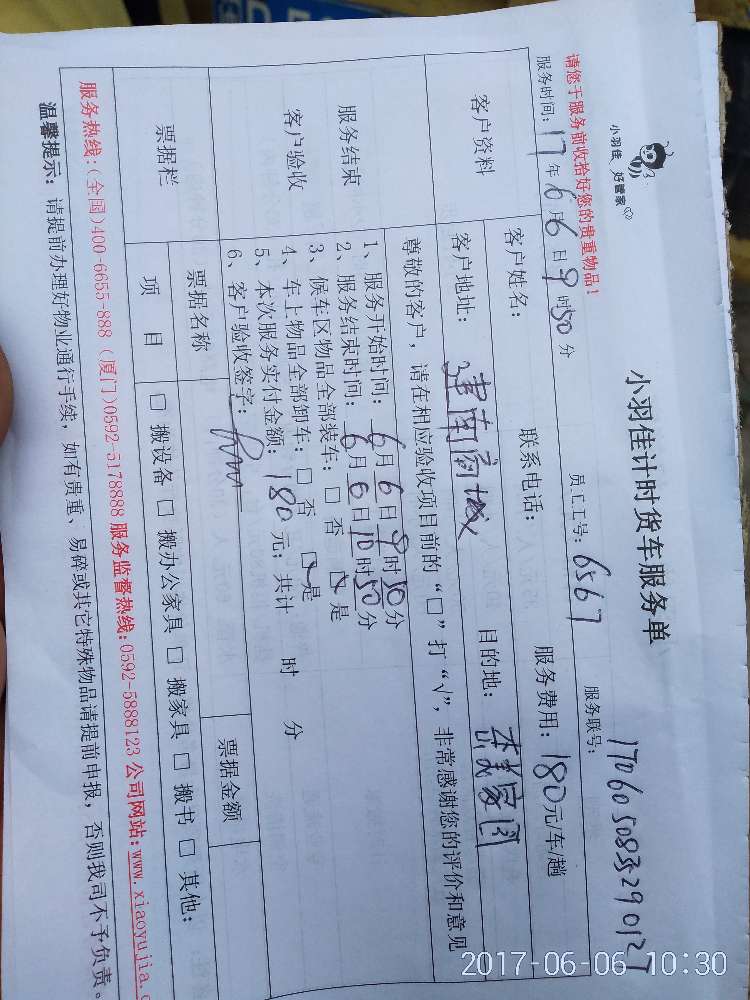 小羽佳 好管家
小羽佳计时货车服务单
请您于服务前收拾好您的贵重物品！
服务时间：17年6月6日9时50分 员工工号：6567 服务联号：
客户资料 客户姓名： 联系电话： 服务费用：180元/车/趟
客户地址：建南商城 目的地：
服务结束
客户验收
尊敬的客户，请在相应验收项目前的“□”打“√”，非常感谢您的评价和意见
1、服务开始时间：6月6日9时50分
2、服务结束时间：6月6日10时50分
3、候车区物品全部装车：□ 否 ☑ 是
4、车上物品全部卸车：□ 否 ☑ 是
5、本次服务实付金额：180元；共计 时 分
6、客户验收签字：
票据栏 票据名称 票据金额
项 目 □ 搬设备 □ 搬办公家具 □ 搬家具 □ 搬书 □ 其他：
服务热线：(全国)400-6655-888 (厦门)0592-5178888 服务监督热线:0592-5888123 公司网站：www.xiaoyujia.c
温馨提示：请提前办理好物业通行手续，如有贵重、易碎或其它特殊物品请提前申报，否则我司不予负责。
2017-06-06 10:30